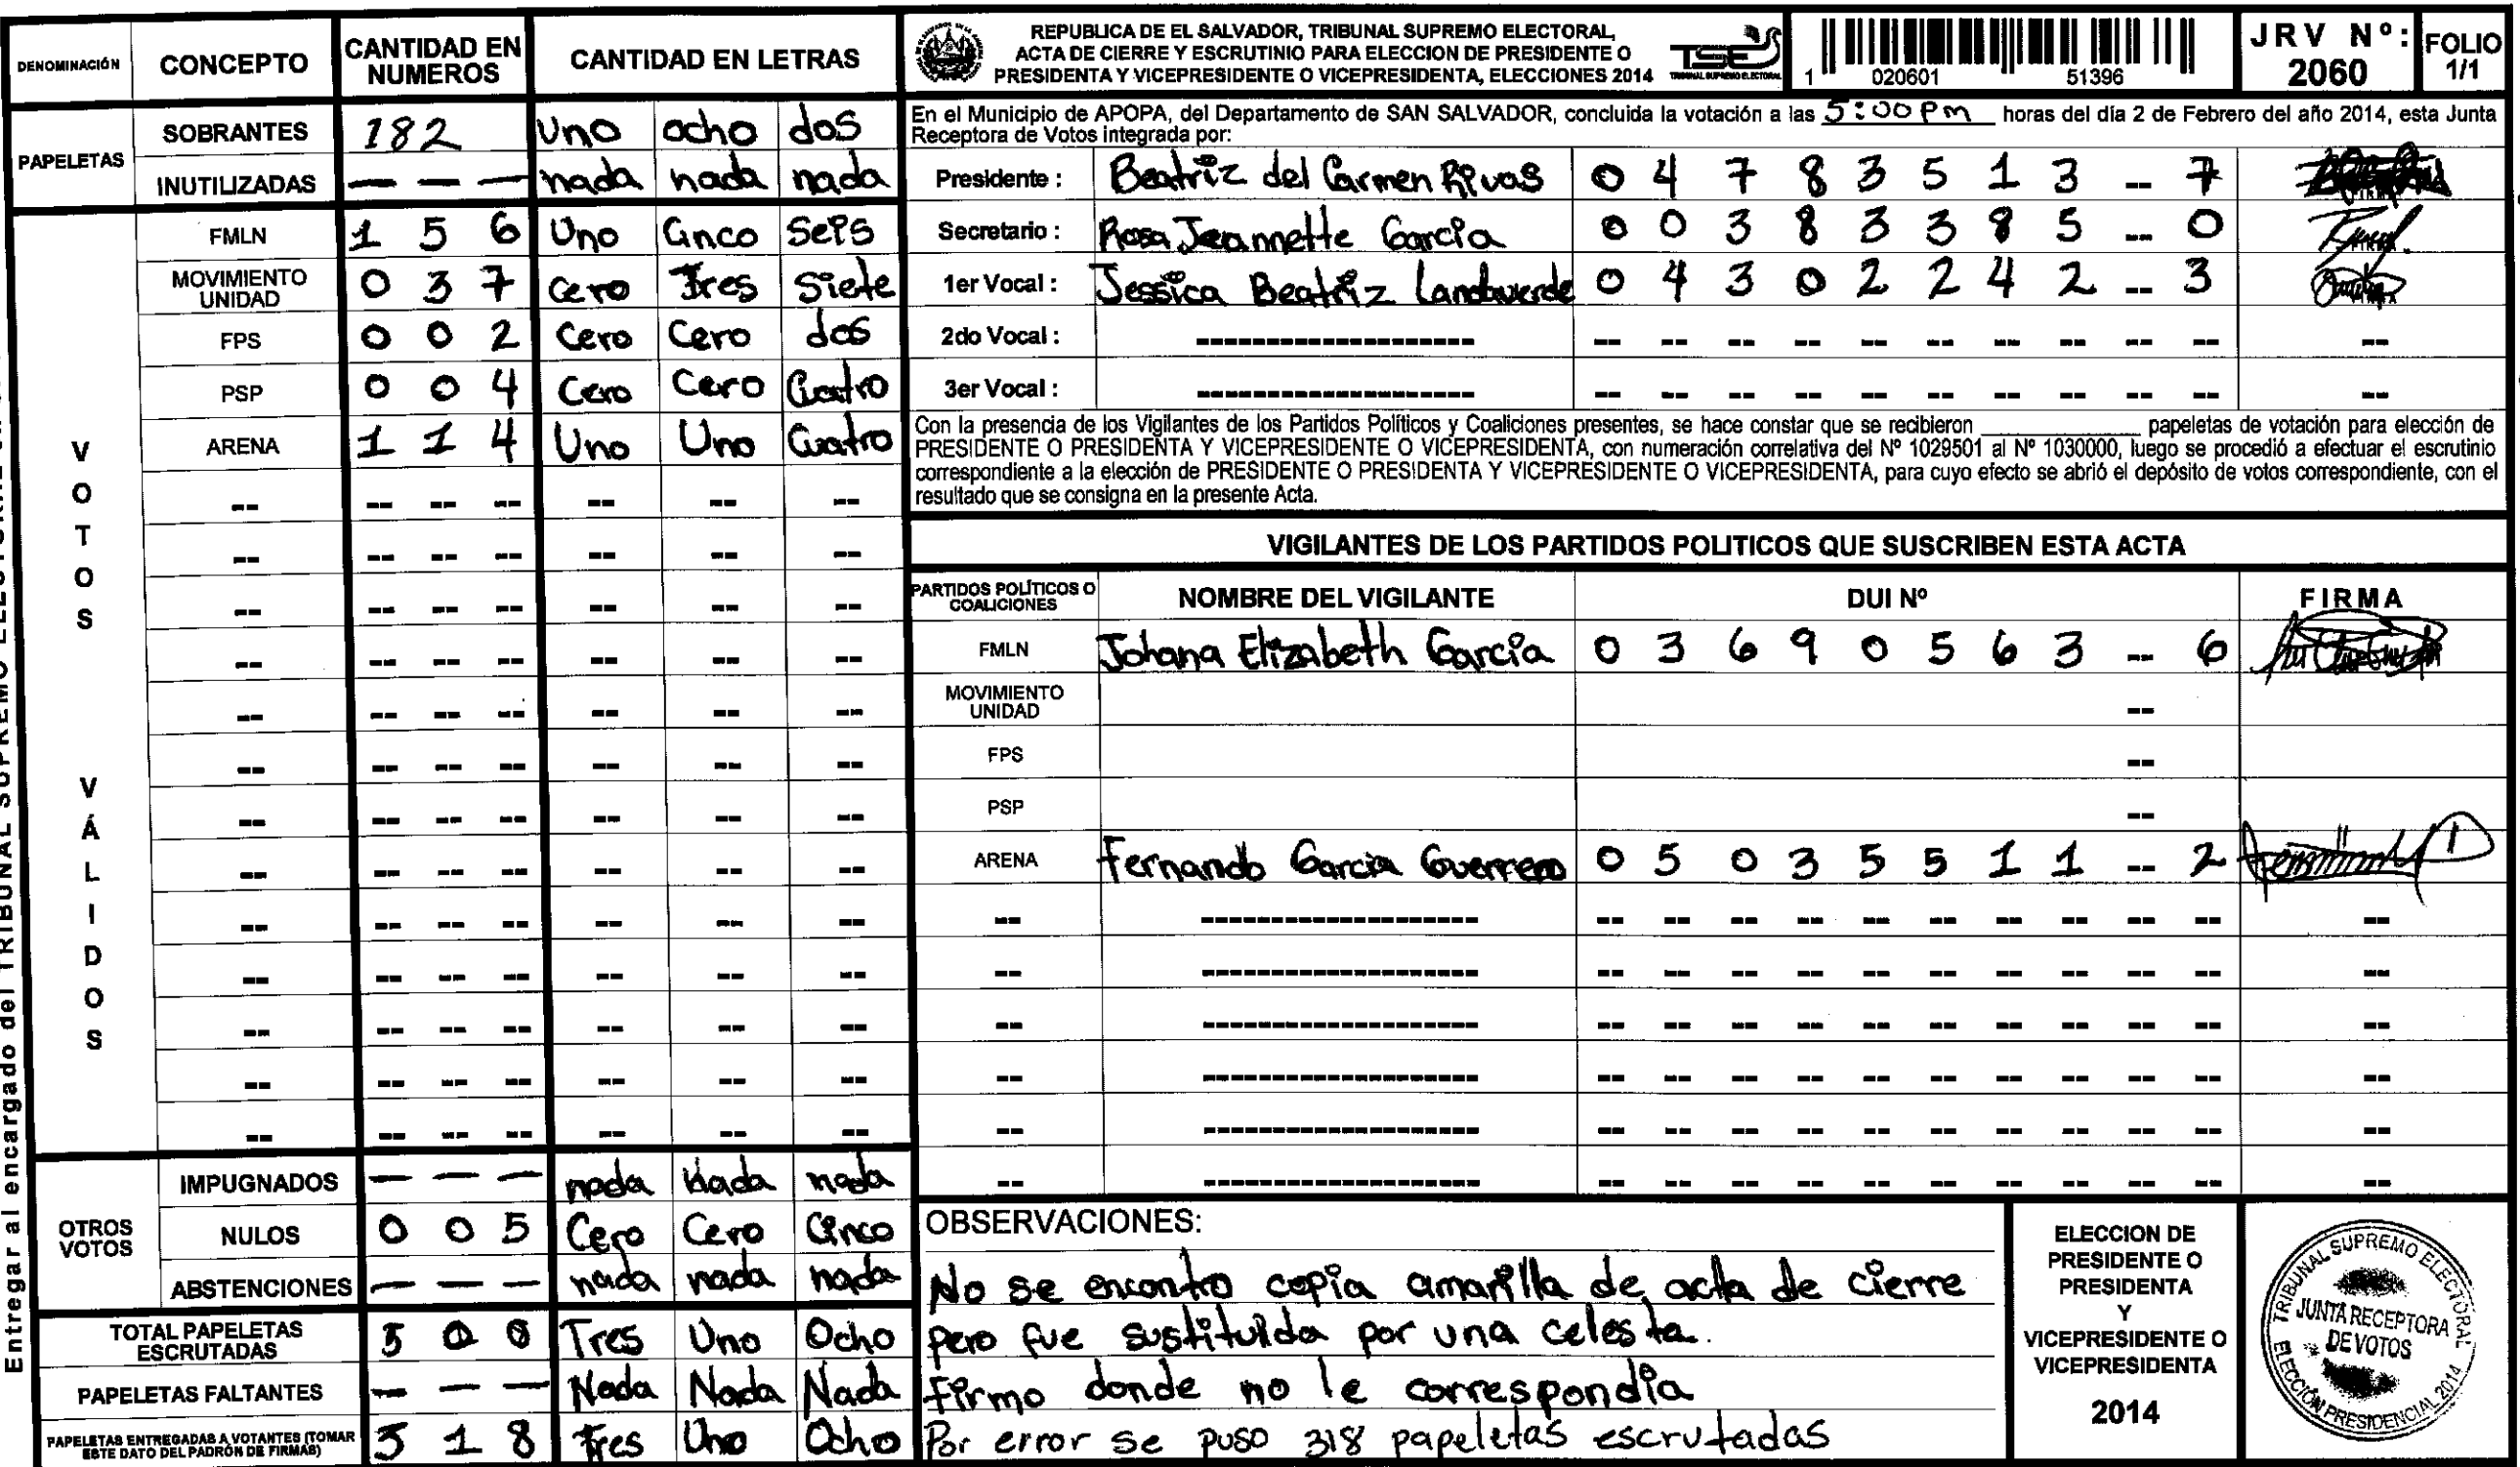 DENOMINACIÓN CONCEPTO CANTIDAD EN NUMEROS CANTIDAD EN LETRAS
PAPELETAS
SOBRANTES 182 Uno ocho dos
INUTILIZADAS — — — nada nada nada
VOTOS VÁLIDOS
FMLN 1 5 6 Uno Cinco Seis
MOVIMIENTO UNIDAD 0 3 7 Cero Tres Siete
FPS 0 0 2 Cero Cero dos
PSP 0 0 4 Cero Cero Cuatro
ARENA 1 1 4 Uno Uno Cuatro
OTROS VOTOS
IMPUGNADOS — — — nada nada nada
NULOS 0 0 5 Cero Cero Cinco
ABSTENCIONES — — — nada nada nada
TOTAL PAPELETAS ESCRUTADAS 5 0 0 Tres Uno Ocho
PAPELETAS FALTANTES — — — Nada Nada Nada
PAPELETAS ENTREGADAS A VOTANTES (TOMAR ESTE DATO DEL PADRÓN DE FIRMAS) 3 1 8 Tres Uno Ocho
REPUBLICA DE EL SALVADOR, TRIBUNAL SUPREMO ELECTORAL,
ACTA DE CIERRE Y ESCRUTINIO PARA ELECCION DE PRESIDENTE O
PRESIDENTA Y VICEPRESIDENTE O VICEPRESIDENTA, ELECCIONES 2014
TSE
TRIBUNAL SUPREMO ELECTORAL
1 020601 51396
JRV Nº: 2060
FOLIO 1/1
En el Municipio de APOPA, del Departamento de SAN SALVADOR, concluida la votación a las 5:00 pm horas del día 2 de Febrero del año 2014, esta Junta
Receptora de Votos integrada por:
Presidente : Beatriz del Carmen Rivas 0 4 7 8 3 5 1 3 -- 7
Secretario : Rosa Jeannette Garcia 0 0 3 8 3 3 8 5 -- 0
1er Vocal : Jessica Beatriz Landaverde 0 4 3 0 2 2 4 2 -- 3
2do Vocal : -------------------
3er Vocal : -------------------
Con la presencia de los Vigilantes de los Partidos Políticos y Coaliciones presentes, se hace constar que se recibieron ____________ papeletas de votación para elección de
PRESIDENTE O PRESIDENTA Y VICEPRESIDENTE O VICEPRESIDENTA, con numeración correlativa del Nº 1029501 al Nº 1030000, luego se procedió a efectuar el escrutinio
correspondiente a la elección de PRESIDENTE O PRESIDENTA Y VICEPRESIDENTE O VICEPRESIDENTA, para cuyo efecto se abrió el depósito de votos correspondiente, con el
resultado que se consigna en la presente Acta.
VIGILANTES DE LOS PARTIDOS POLITICOS QUE SUSCRIBEN ESTA ACTA
PARTIDOS POLÍTICOS O COALICIONES NOMBRE DEL VIGILANTE DUI Nº FIRMA
FMLN Johana Elizabeth Garcia 0 3 6 9 0 5 6 3 -- 6
MOVIMIENTO UNIDAD --
FPS --
PSP --
ARENA Fernando Garcia Guerrero 0 5 0 3 5 5 1 1 -- 2
OBSERVACIONES:
No se encontro copia amarilla de acta de cierre
pero fue sustituida por una celesta.
Firmo donde no le correspondia
Por error se puso 318 papeletas escrutadas
ELECCION DE
PRESIDENTE O
PRESIDENTA
Y
VICEPRESIDENTE O
VICEPRESIDENTA
2014
TRIBUNAL SUPREMO ELECTORAL
JUNTA RECEPTORA
DE VOTOS
ELECCIÓN PRESIDENCIAL 2014
Entregar al encargado del TRIBUNAL SUPREMO